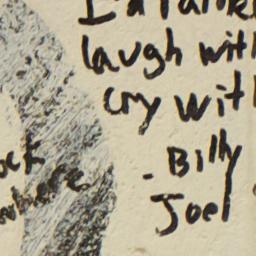 I'd rather
laugh with
cry wit
- Billy
Joel
ock
where